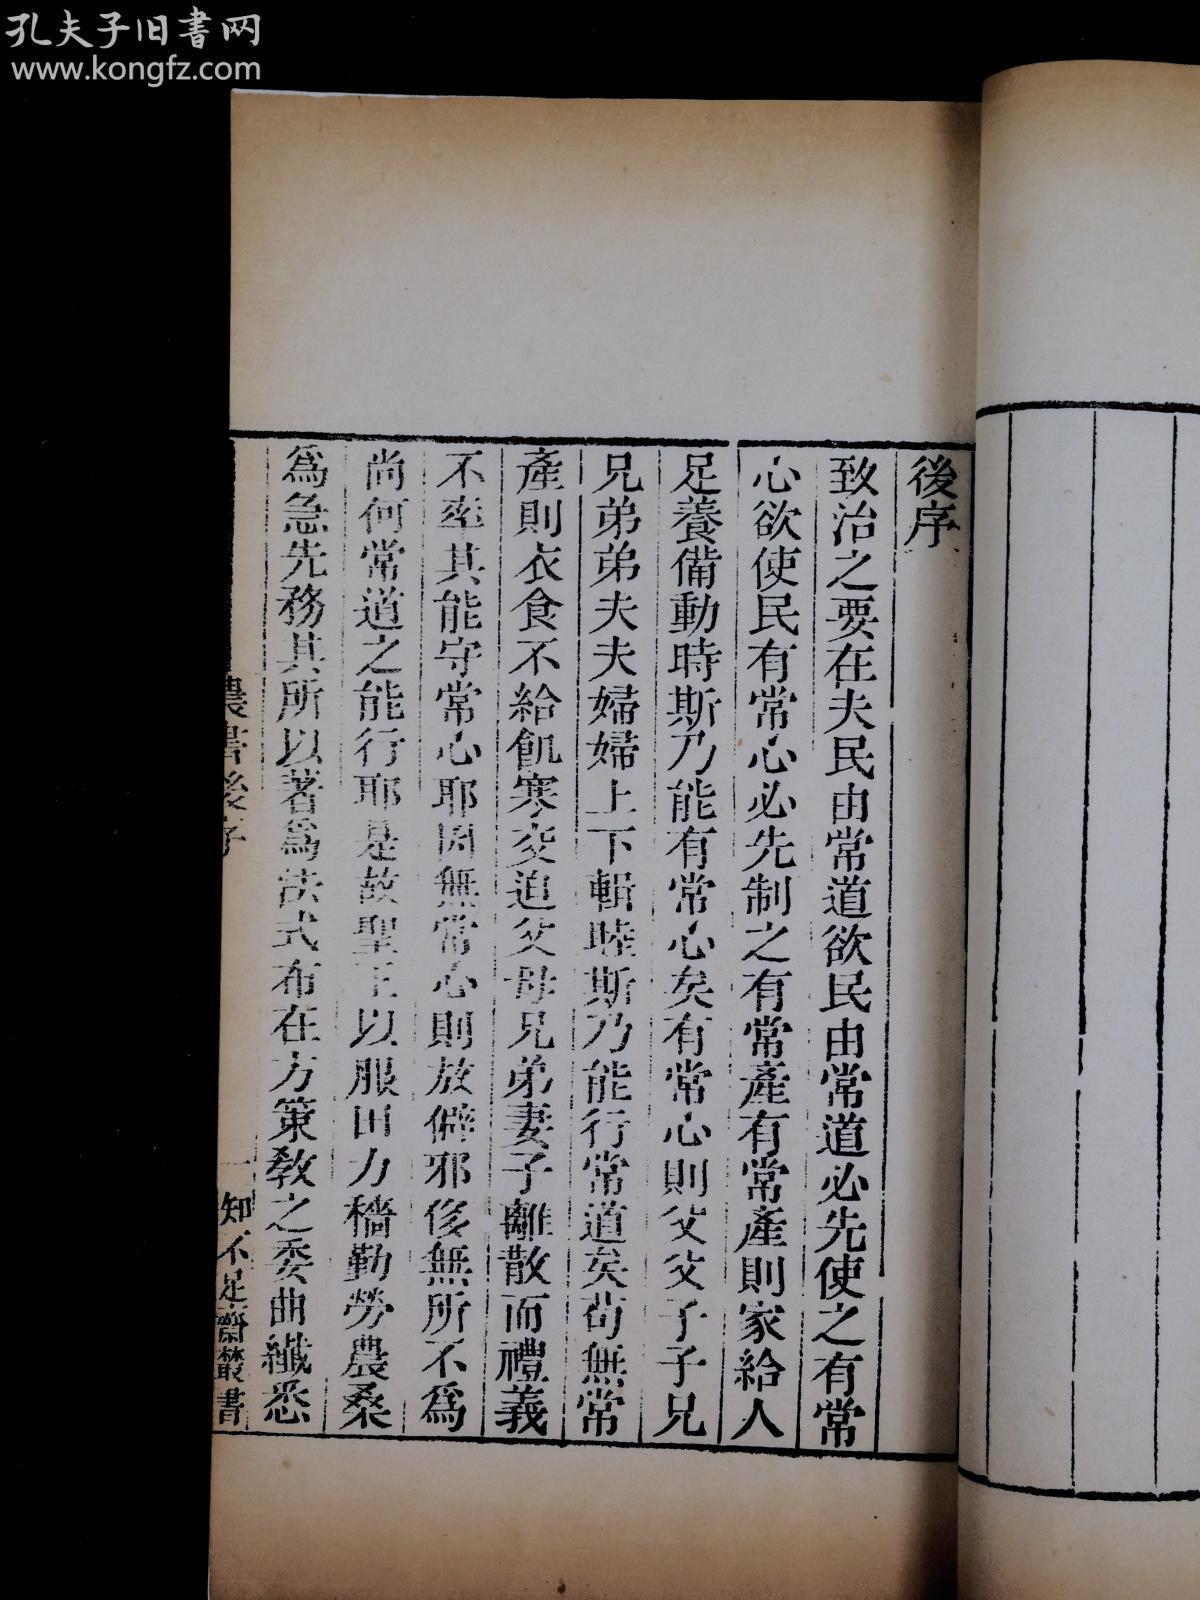 孔夫子旧書网
www.kongfz.com
後序
致治之要在夫民由常道欲民由常道必先使之有常
心欲使民有常心必先制之有常產有常產則家給人
足養備動時斯乃能有常心矣有常心則父父子子兄
兄弟弟夫夫婦婦上下輯睦斯乃能行常道矣茍無常
產則衣食不給飢寒交迫父母兄弟妻子離散而禮義
不率其能守常心耶因無常心則放僻邪侈無所不為
尚何常道之能行耶是故聖王以服田力穡勤勞農桑
為急先務其所以著為法式布在方策教之委曲纖悉
農書後序
一
知不足齋叢書